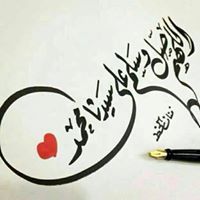 اللهم صل وسلم على سيدنا محمد